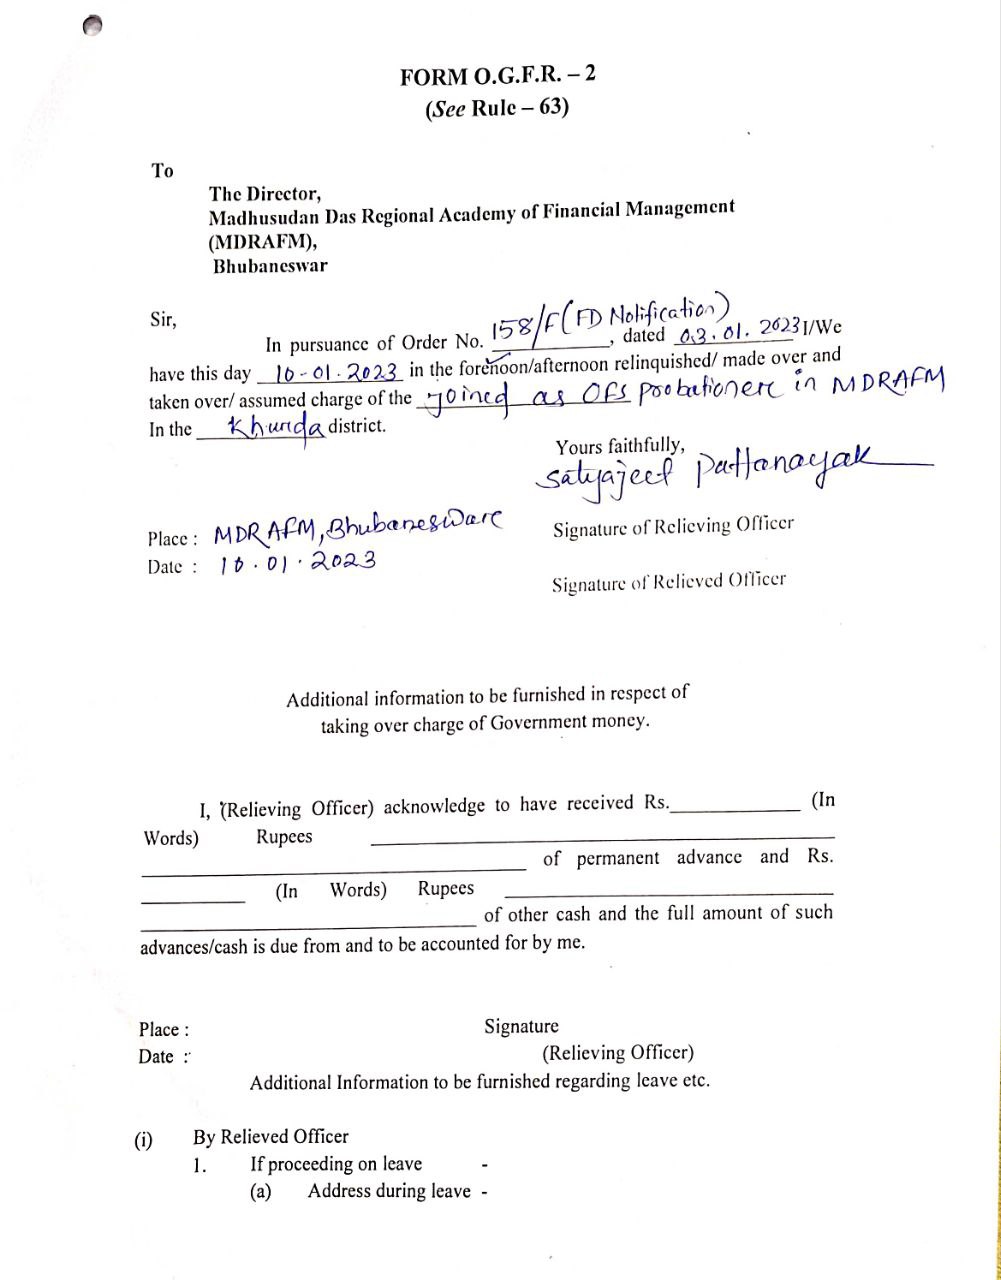 FORM O.G.F.R. – 2
(See Rule – 63)
To
The Director,
Madhusudan Das Regional Academy of Financial Management
(MDRAFM),
Bhubaneswar
Sir,
In pursuance of Order No. 158/F (FD Notification), dated 03.01.2023 I/We
have this day 10-01-2023 in the forenoon/afternoon relinquished/ made over and
taken over/ assumed charge of the joined as OFS probationer in MDRAFM
In the Khurda district.
Yours faithfully,
Satyajeet Pattanayak
Place : MDRAFM, Bhubaneswar
Signature of Relieving Officer
Date : 10.01.2023
Signature of Relieved Officer
Additional information to be furnished in respect of
taking over charge of Government money.
I, (Relieving Officer) acknowledge to have received Rs.____________ (In
Words) Rupees ____________
____________ of permanent advance and Rs.
____________ (In Words) Rupees ____________
____________ of other cash and the full amount of such
advances/cash is due from and to be accounted for by me.
Place : Signature
Date : (Relieving Officer)
Additional Information to be furnished regarding leave etc.
(i) By Relieved Officer
1. If proceeding on leave -
(a) Address during leave -